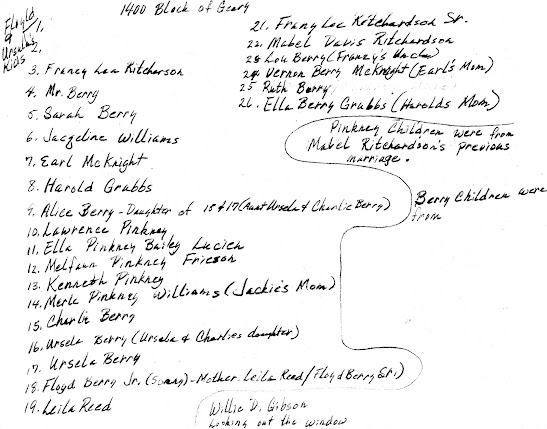 1400 Block of Geary
Floyld
&
Ursula's
Kids
1,
2,
3. Francy Lee Ritcherson
4. Mr. Berry
5. Sarah Berry
6. Jacqeline Williams
7. Earl McKnight
8. Harold Grubbs
9. Alice Berry - Daughter of 15 & 17 (Aunt Ursela & Charlie Berry)
10. Lawrence Pinkney
11. Ella Pinkney Bailey Lucien
12. Melfaun Pinkney Frieson
13. Kenneth Pinkney
14. Merle Pinkney Williams (Jackie's Mom)
15. Charlie Berry
16. Ursela Berry (Ursela & Charlies daughter)
17. Ursela Berry
18. Floyd Berry Jr. (Sonny) - Mother Leila Reed / Floyd Berry Sr.)
19. Leila Reed
21. Frany Lee Ritchardson Sr.
22. Mabel Davis Ritchardson
23 Lou Berry (Franzy's Uncle)
24. Vernon Berry McKnight (Earl's Mom)
25 Ruth Berry
26. Ella Berry Grubbs (Harolds Mom)
Pinkney Children were from
Mabel Ritchardson's previous
marriage.
Berry Children were
from
Willie D. Gibson
Looking out the window